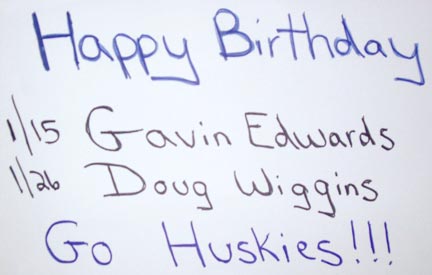 Happy Birthday
1/15 Gavin Edwards
1/26 Doug Wiggins
Go Huskies!!!